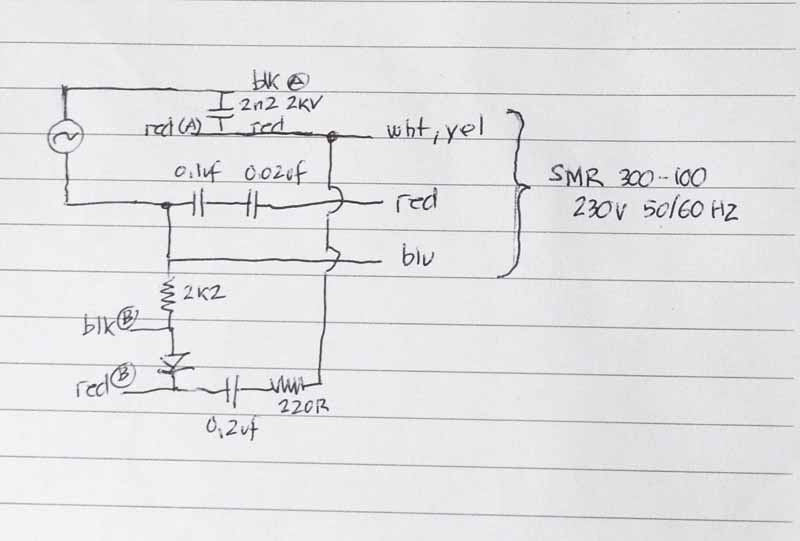 blk Ⓐ
2n2 2KV
red(A) red
wht, yel
0.1uf 0.02uf
SMR 300-100
red
230V 50/60 HZ
blu
2K2
blk Ⓑ
red Ⓑ
220R
0.2uf